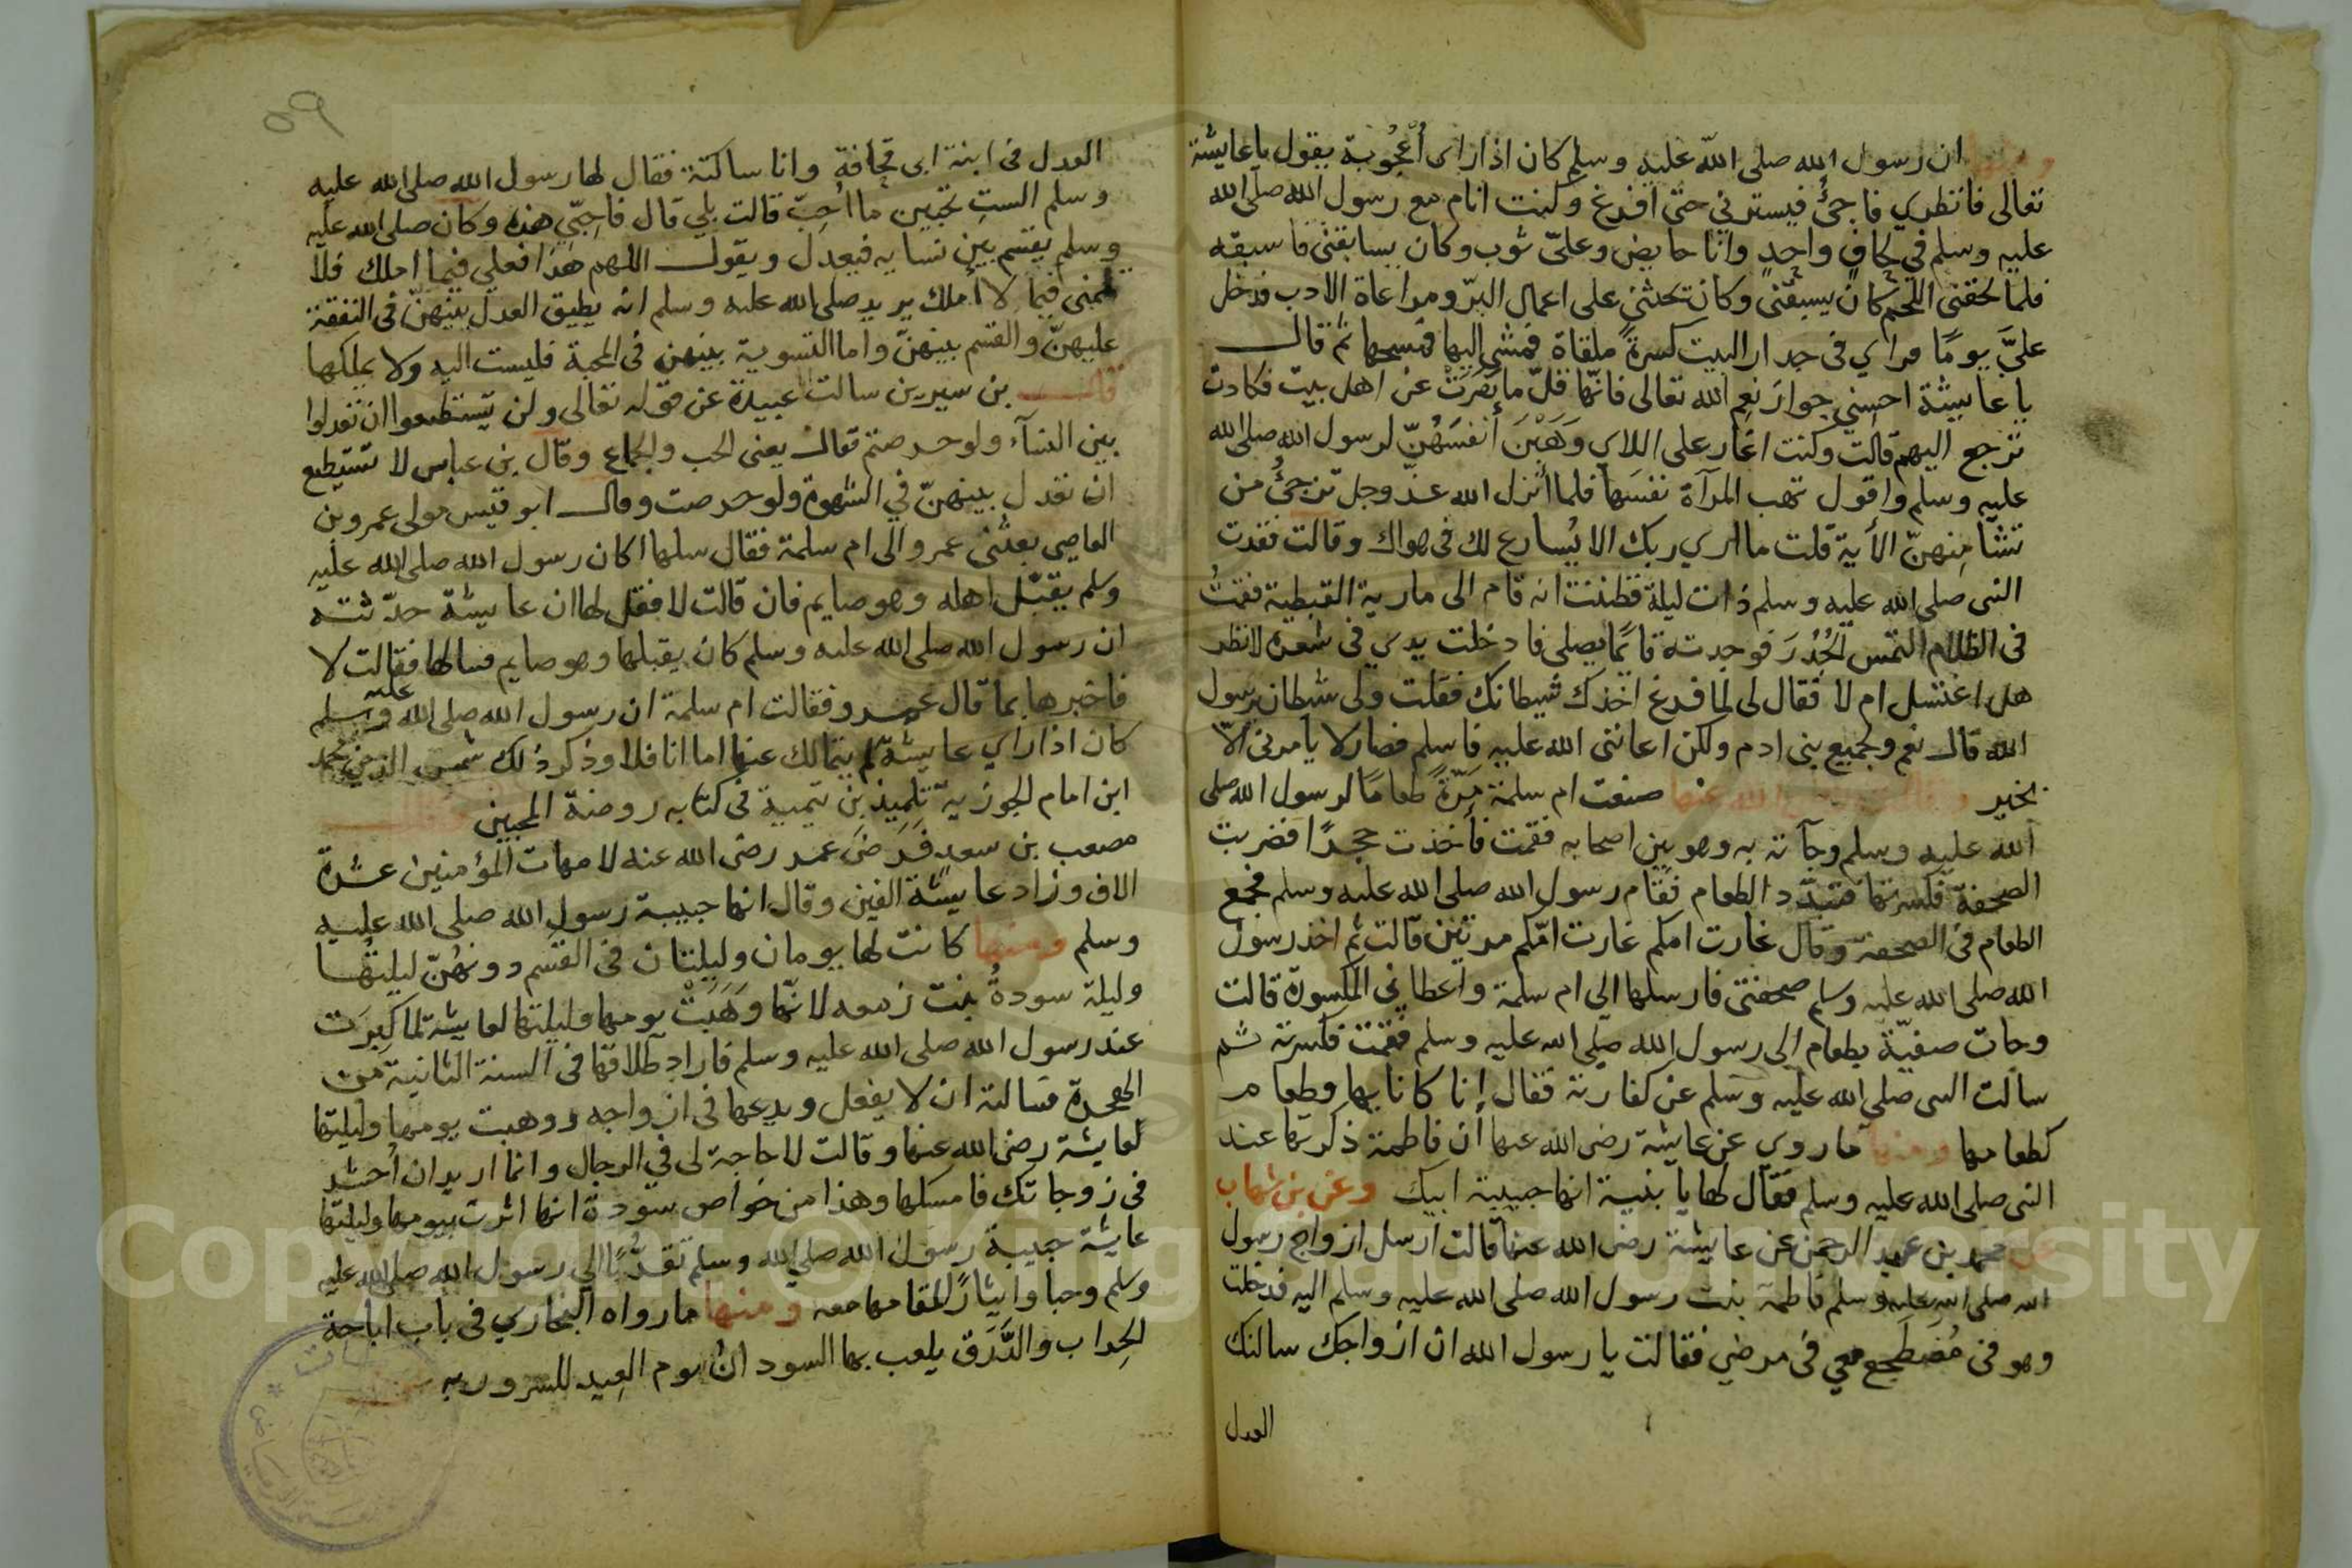 ومنها ان رسول الله صلى الله عليه وسلم كان اذا راى أُعْجُوبة يقول يا عايشة
تعالى فانظري فاجئُ فيسترني حتى افرغ وكنت انام مع رسول الله صلى الله
عليه وسلم في لحافٍ واحدٍ وانا حايض وعليّ ثوب وكان يسابقنى فاسبقه
فلما لحقنى اللحم كان يسبقنى وكان تحثني على اعمال البرّ ومراعاة الادب فدخل
عليَّ يومًا فراي فى جدار البيت كسرةً ملقاة فمشى اليها فمسحها ثم قال
يا عايشة احسِني جوارَ نِعم الله تعالى فانّها قلّ ما نَفَرَتْ عن اهل بيت فكادت
ترجع اليهم قالت وكنت اغار على اللاي وَهَبْنَ أنفسَهُنّ لرسول الله صلى الله
عليه وسلم واقول تهب المرآة نفسَها فلما أنزل الله عزّ وجل ترجئُ من
تشا مِنهنّ الأية قلت ما ارى ربك الا يُسارع لك فى هواك وقالت فقدت
النبى صلى الله عليه وسلم ذات ليلة فظننت انه قام الى مارية القبطية فقمتُ
فى الظلام التمس الجُدُرَ فوجدته قائمًا يصلى فادخلت يدي في شعره لانظر
هل اغتسل ام لا فقال لى لما فرغ اخذك شيطانك فقلت ولى شيطان يرسول
الله قال نعم ولجميع بنى ادم ولكن اعاننى الله عليه فاسلم فصار لا يامرنى الّا
بخير وقالت رضى الله عنها صنعت ام سلمة مَرّةً طعامًا لرسول الله صلى
الله عليه وسلم وجآته به وهو بين اصحابه فقمت فأخذت حجرًا فضربت
الصحفة فكسرتها فتبدّد الطعام فقام رسول الله صلى الله عليه وسلم فجمع
الطعام فى الصحفة وقال غارت امكم غارت امّكم مرتين قالت ثم اخذ رسول
الله صلى الله عليه وسلم صحفتى فارسلها الى ام سلمة واعطاني المكسورة قالت
وجات صفيّة بطعام الى رسول الله صلى الله عليه وسلم فقمت فكسرته ثم
سالت النبى صلى الله عليه وسلم عن كفارته فقال إنا كانايها وطعام
كطعامها ومنها ما روي عن عايشة رضى الله عنها أن فاطمة ذكرتها عند
النبى صلى الله عليه وسلم فقال لها يا بنية انها حبيبة ابيك وعن بن شهاب
عن محمد بن عبد الرحمن عن عايشة رضى الله عنها قالت ارسل ازواج رسول
الله صلى الله عليه وسلم فاطمة بنت رسول الله صلى الله عليه وسلم اليه فدخلت
وهو فى مُضطَجع معي فى مرطي فقالت يا رسول الله ان ازواجك سالنك
العدل
٥٩
العدل فى ابنة ابى قحافة وانا ساكتة فقال لها رسول الله صلى الله عليه
وسلم الستِ تحبين ما احِبّ قالت بلي قال فاحِبّي هذه وكان صلى الله عليه
وسلم يقسم بين نسايه فيعدل ويقول اللهم هذا فعلي فيما املك فلا
تلمنى فيما لا أملك يريد صلى الله عليه وسلم انه يطيق العدل بينهنّ فى النفقة
عليهنّ والقسم بينهنّ واما التسوية بينهن فى المحبة فليست اليه ولا يملكها
قال بن سيرين سالت عبيدة عن قوله تعالى ولن تستطيعوا ان تعدلوا
بين النسآء ولو حرصتم فقال يعنى الحب والجماع وقال بن عباس لا تستطيع
ان تعدل بينهنّ في الشهوة ولو حرصت وقال ابو قيس مولى عمرو بن
العاصي بعثنى عمرو الى ام سلمة فقال سلها اكان رسول الله صلى الله عليه
وسلم يقبّل اهله وهو صايم فان قالت لا فقل لها ان عايشة حدّثته
ان رسول الله صلى الله عليه وسلم كان يقبلها وهو صايم فسالها فقالت لا
فاخبرها بما قال عمرو فقالت ام سلمة ان رسول الله صلى الله عليه وسلم
كان اذا راي عايشة لم يتمالك عنها اما انا فلا وذكر ذلك شمس الدين محمد
ابن امام الجوزية تلميذ بن تيمية في كتابه روضة المحبين وقال
مصعب بن سعد فَرَضَ عمر رضى الله عنه لامهات المؤمنين عشرة
الاف وزاد عايشة الفين وقال انها حبيبة رسول الله صلى الله عليه
وسلم ومنها كانت لها يومان وليلتان فى القسم دونهُنّ ليلتُها
وليلة سودةُ بنت زمعه لانّها وَهَبَتْ يومها وليلتها لعايشة لما كبِرَت
عند رسول الله صلى الله عليه وسلم فاراد طلاقها فى السنة الثانية من
الهجرة فسالته ان لا يفعل ويدعها فى ازواجه ووهبت يومها وليلتها
لعايشة رضى الله عنها وقالت لا حاجة لى في الرجال وانما اريد ان أحشر
فى زوجاتك فامسكها وهذا من خواص سودة انها اثرت بيومها وليلتها
عايشة حبيبة رسول الله صلى الله وسلم تقرُّبًا الي رسول الله صلى الله عليه
وسلم وحبا وايثارًا لمقامها معه ومنها ما رواه البخاري فى باب اباحة
الحِراب والدَّرَق يلعب بها السودان يوم العِيد للسرور به